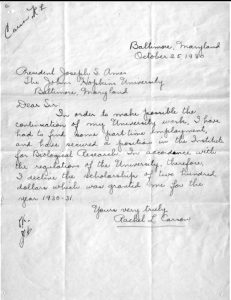 Carson, R. L.
Baltimore, Maryland
October 25, 1930
President Joseph S. Ames
The Johns Hopkins University
Baltimore, Maryland
Dear Sir:
In order to make possible the
continuation of my University work, I have
had to find some part time employment,
and have secured a position in the Institute
for Biological Research. In accordance with
the regulations of the University, therefore,
I decline the scholarship of two hundred
dollars which was granted me for the
year 1930-31.
Yours very truly,
Rachel L. Carson